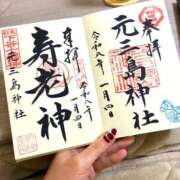 奉拝
元三島神社
令和八年
一月四日
奉拝
寿老神
令和八年
一月四日
元三島神社